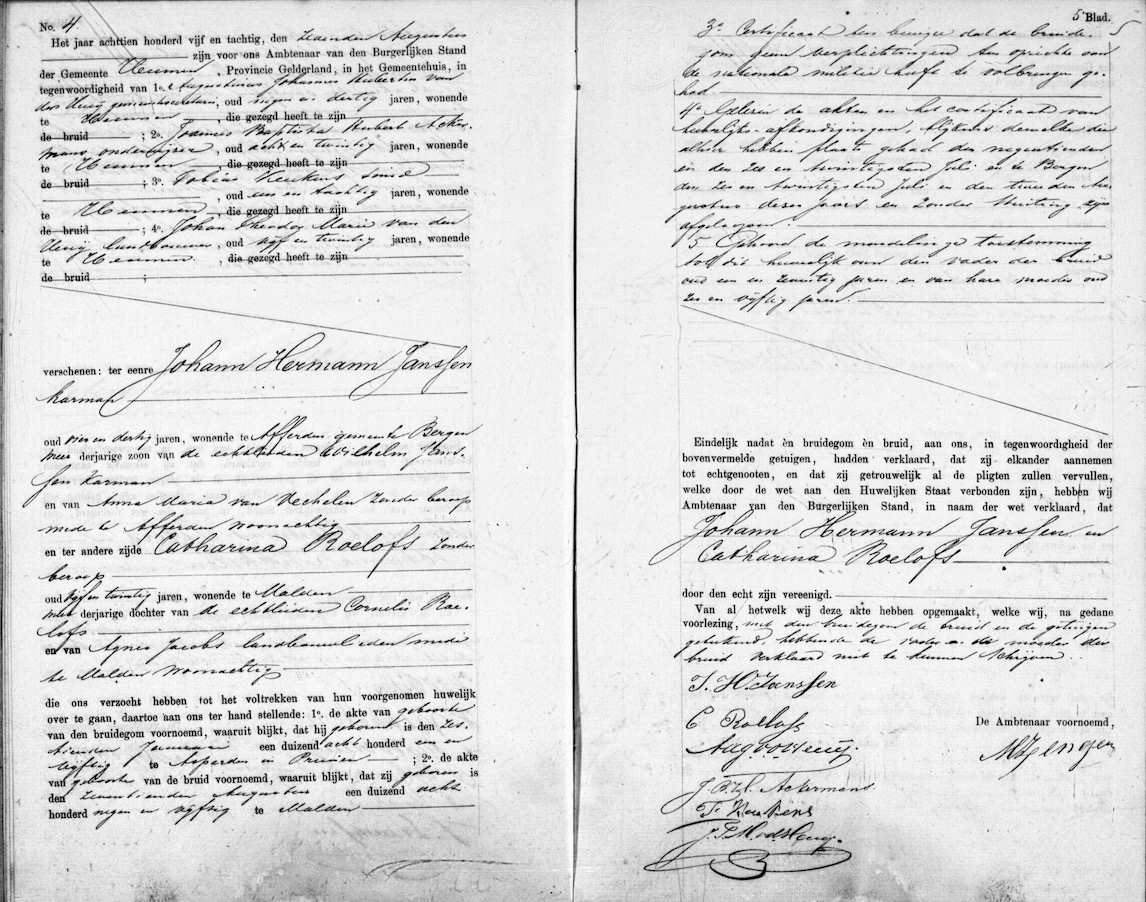 No. 4
Het jaar achttien honderd vijf en tachtig, den zevenden Augustus
zijn voor ons Ambtenaar van den Burgerlijken Stand
der Gemeente Heumen, Provincie Gelderland, in het Gemeentehuis, in
tegenwoordigheid van 1o. Augustinus Johannes Hubertus van
der Heurij gemeentesecretaris, oud negen en dertig jaren, wonende
te Heumen, die gezegd heeft te zijn
de bruid ; 2o. Joannes Baptista Hubert Acker-
mans onderwijzer, oud acht en twintig jaren, wonende
te Heumen, die gezegd heeft te zijn
de bruid ; 3o. Tobias Heukens smid
, oud een en tachtig jaren, wonende
te Heumen, die gezegd heeft te zijn
de bruid ; 4o. Johan Theodor Marie van den
Heurij landbouwer, oud vijf en twintig jaren, wonende
te Heumen, die gezegd heeft te zijn
de bruid ;
verschenen: ter eenre Johann Hermann Janssen
karman
oud vier en dertig jaren, wonende te Afferden gemeente Bergen
meerderjarige zoon van de echtelieden Wilhelm Jans-
sen karman
en van Anna Maria van Vechelen zonder beroep
mede te Afferden woonachtig
en ter andere zijde Catharina Roelofs zonder
beroep
oud vijf en twintig jaren, wonende te Malden
meerderjarige dochter van de echtelieden Cornelis Roe-
lofs
en van Agnes Jacobs landbouwlieden mede
te Malden woonachtig
die ons verzocht hebben tot het voltrekken van hun voorgenomen huwelijk
over te gaan, daartoe aan ons ter hand stellende: 1o. de akte van geboorte
van den bruidegom voornoemd, waaruit blijkt, dat hij geboren is den zes-
tienden Januari een duizend acht honderd een en
vijftig te Asperden in Pruisen ; 2o. de akte
van geboorte van de bruid voornoemd, waaruit blijkt, dat zij geboren is
den zeventienden Augustus een duizend acht
honderd negen en vijftig te Malden
5e Blad.
5
3o Certificaat ten bewijze dat de bruide-
gom geen verplichtingen ten opzichte van
de nationale militie heeft te volbrengen ge-
had.
4o Gelezen de akten en het certificaat van
huwelijks-afkondigingen, blijkens dewelke die
alhier hebben plaats gehad den negentienden
en den zes en twintigsten Juli en te Bergen
den zes en twintigsten Juli en den tweeden Au-
gustus dezes jaars en zonder stuiting zijn
afgeloopen.
5 Gehoord de mondelinge toestemming
tot dit huwelijk van den vader der bruid
oud een en zeventig jaren en van hare moeder oud
zes en vijftig jaren.
Eindelijk nadat èn bruidegom èn bruid, aan ons, in tegenwoordigheid der
bovenvermelde getuigen, hadden verklaard, dat zij elkander aannemen
tot echtgenooten, en dat zij getrouwelijk al de pligten zullen vervullen,
welke door de wet aan den Huwelijken Staat verbonden zijn, hebben wij
Ambtenaar van den Burgerlijken Stand, in naam der wet verklaard, dat
Johann Hermann Janssen en
Catharina Roelofs
door den echt zijn vereenigd.
Van al hetwelk wij deze akte hebben opgemaakt, welke wij, na gedane
voorlezing, met den bruidegom de bruid en de getuigen
geteekend hebbende de vader en de moeder der
bruid verklaard niet te kunnen schrijven.
J. H. Janssen
C Roelofs
De Ambtenaar voornoemd,
J. B. H. Ackermans
T. Heukens